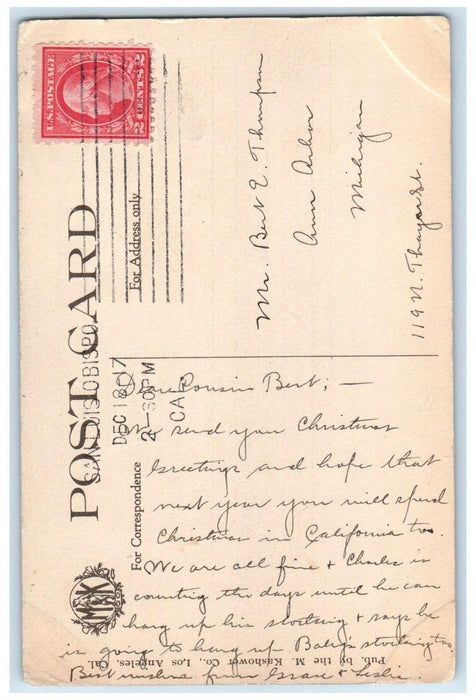 POST CARD
For Address only
For Correspondence
U.S. POSTAGE
2 CENTS 2
SAN LUIS OBISPO
DEC 18 17
2-30 PM
CAL
Mr. Bert E. Thompson
Ann Arbor
Michigan
119 N. Thayer St.
Dear Cousin Bert; —
We send you Christmas
Greetings and hope that
next year you will spend
Christmas in California too.
We are all fine & Charles is
counting the days until he can
hang up his stocking & says he
is going to hang up Baby's stocking too
Best wishes from Grace & Leslie.
M&K
Pub. by the M. Kashower Co., Los Angeles, Cal.